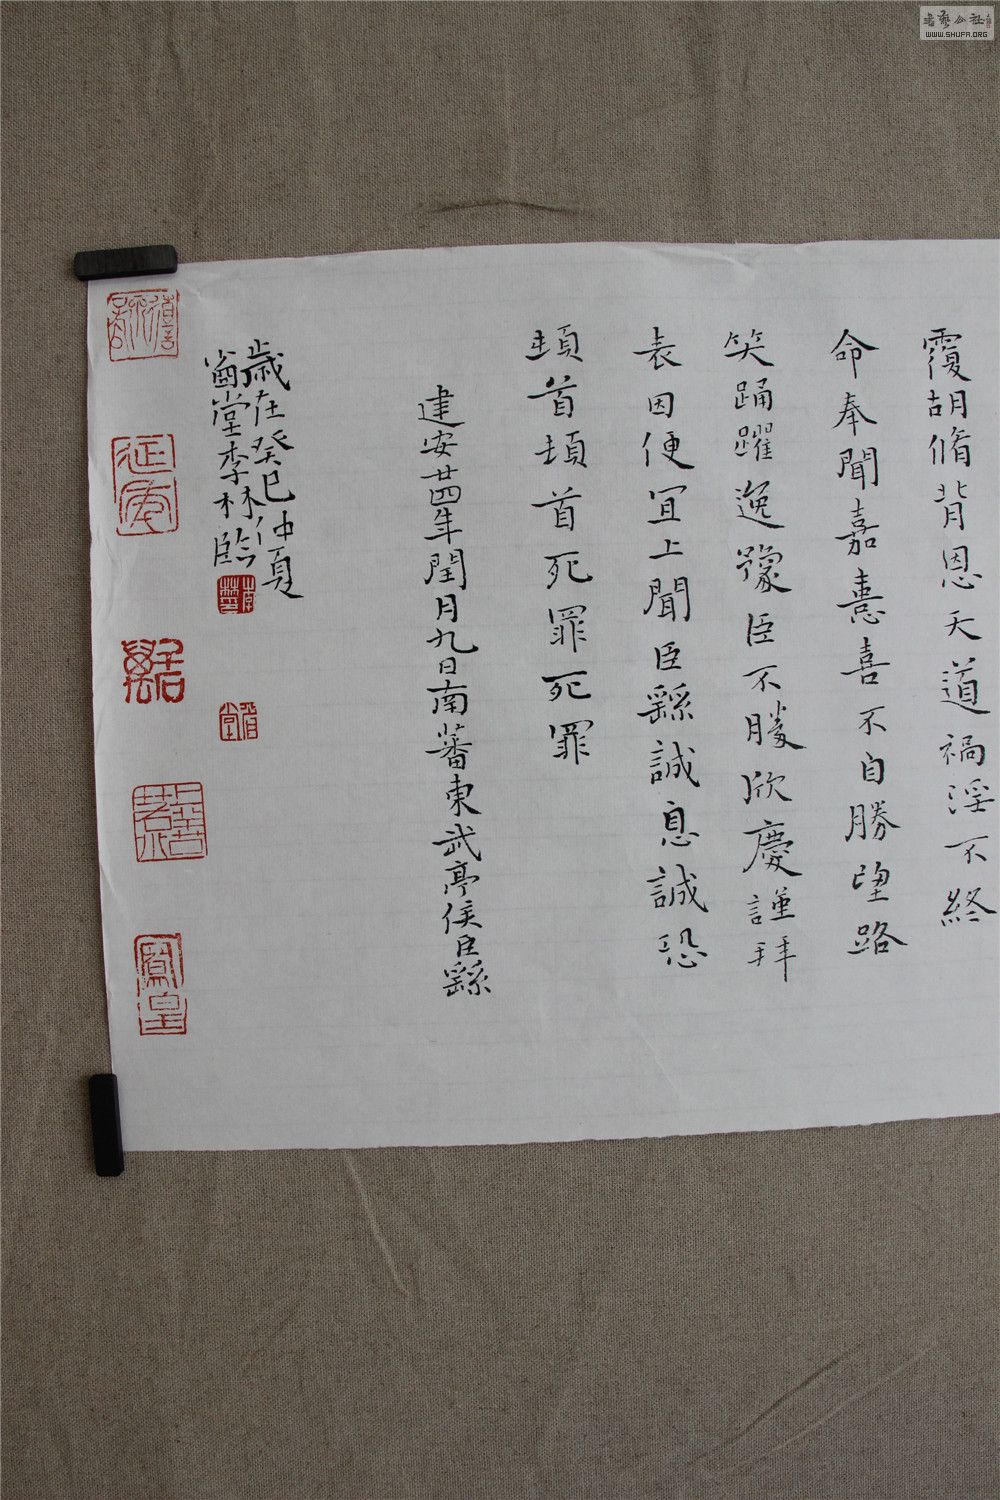 覆胡脩背恩天道禍淫不終
命奉聞嘉憙喜不自勝望路
笑踊躍逸豫臣不勝欣慶謹拜
表因便宜上聞臣繇誠惶誠恐
頓首頓首死罪死罪
建安廿四年閏月九日南蕃東武亭侯臣繇
歲在癸巳仲夏
堂李林臨
鳳皇
WWW.SHUFA.ORG